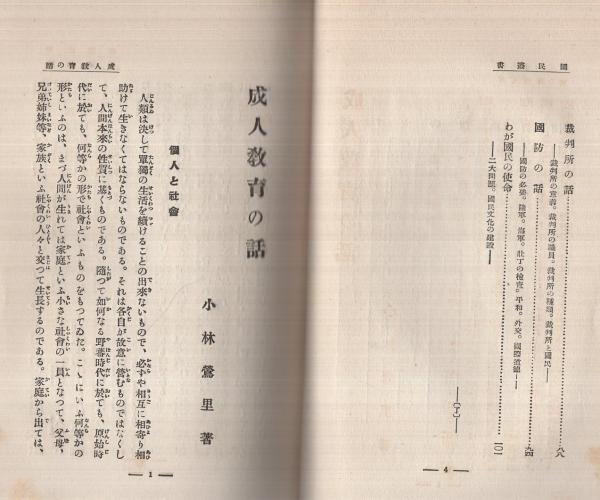 國民叢書
裁判所の話……八八
――裁判所の意義。裁判所の職員。裁判所の種類。裁判所と國民――
國防の話……九四
――國防の必要。陸軍。海軍。壯丁の檢査。平和。外交。國際道德――
わが國民の使命……一〇一
――二大問題。國民文化の建設――
――(了)――
4
成人敎育の話
成人敎育の話
小林鶯里著
個人と社會
人類は決して單獨の生活を續けることの出來ないもので、必ずや相互に相寄り相
助けて生きなくてはならないものである。それは各自が故意に營むものではなくし
て、人間本來の性質に基くものである。隨つて如何なる野蕃時代に於ても、原始時
代に於ても、何等かの形で社會といふものをもつてゐた。こゝにいふ何等かの
形といふのは、まづ人間が生れては家庭といふ小さな社會の一員となつて、父母、
兄弟姉妹等、家族といふ社會の人々と交つて生長するのである。家庭から出ては、
1